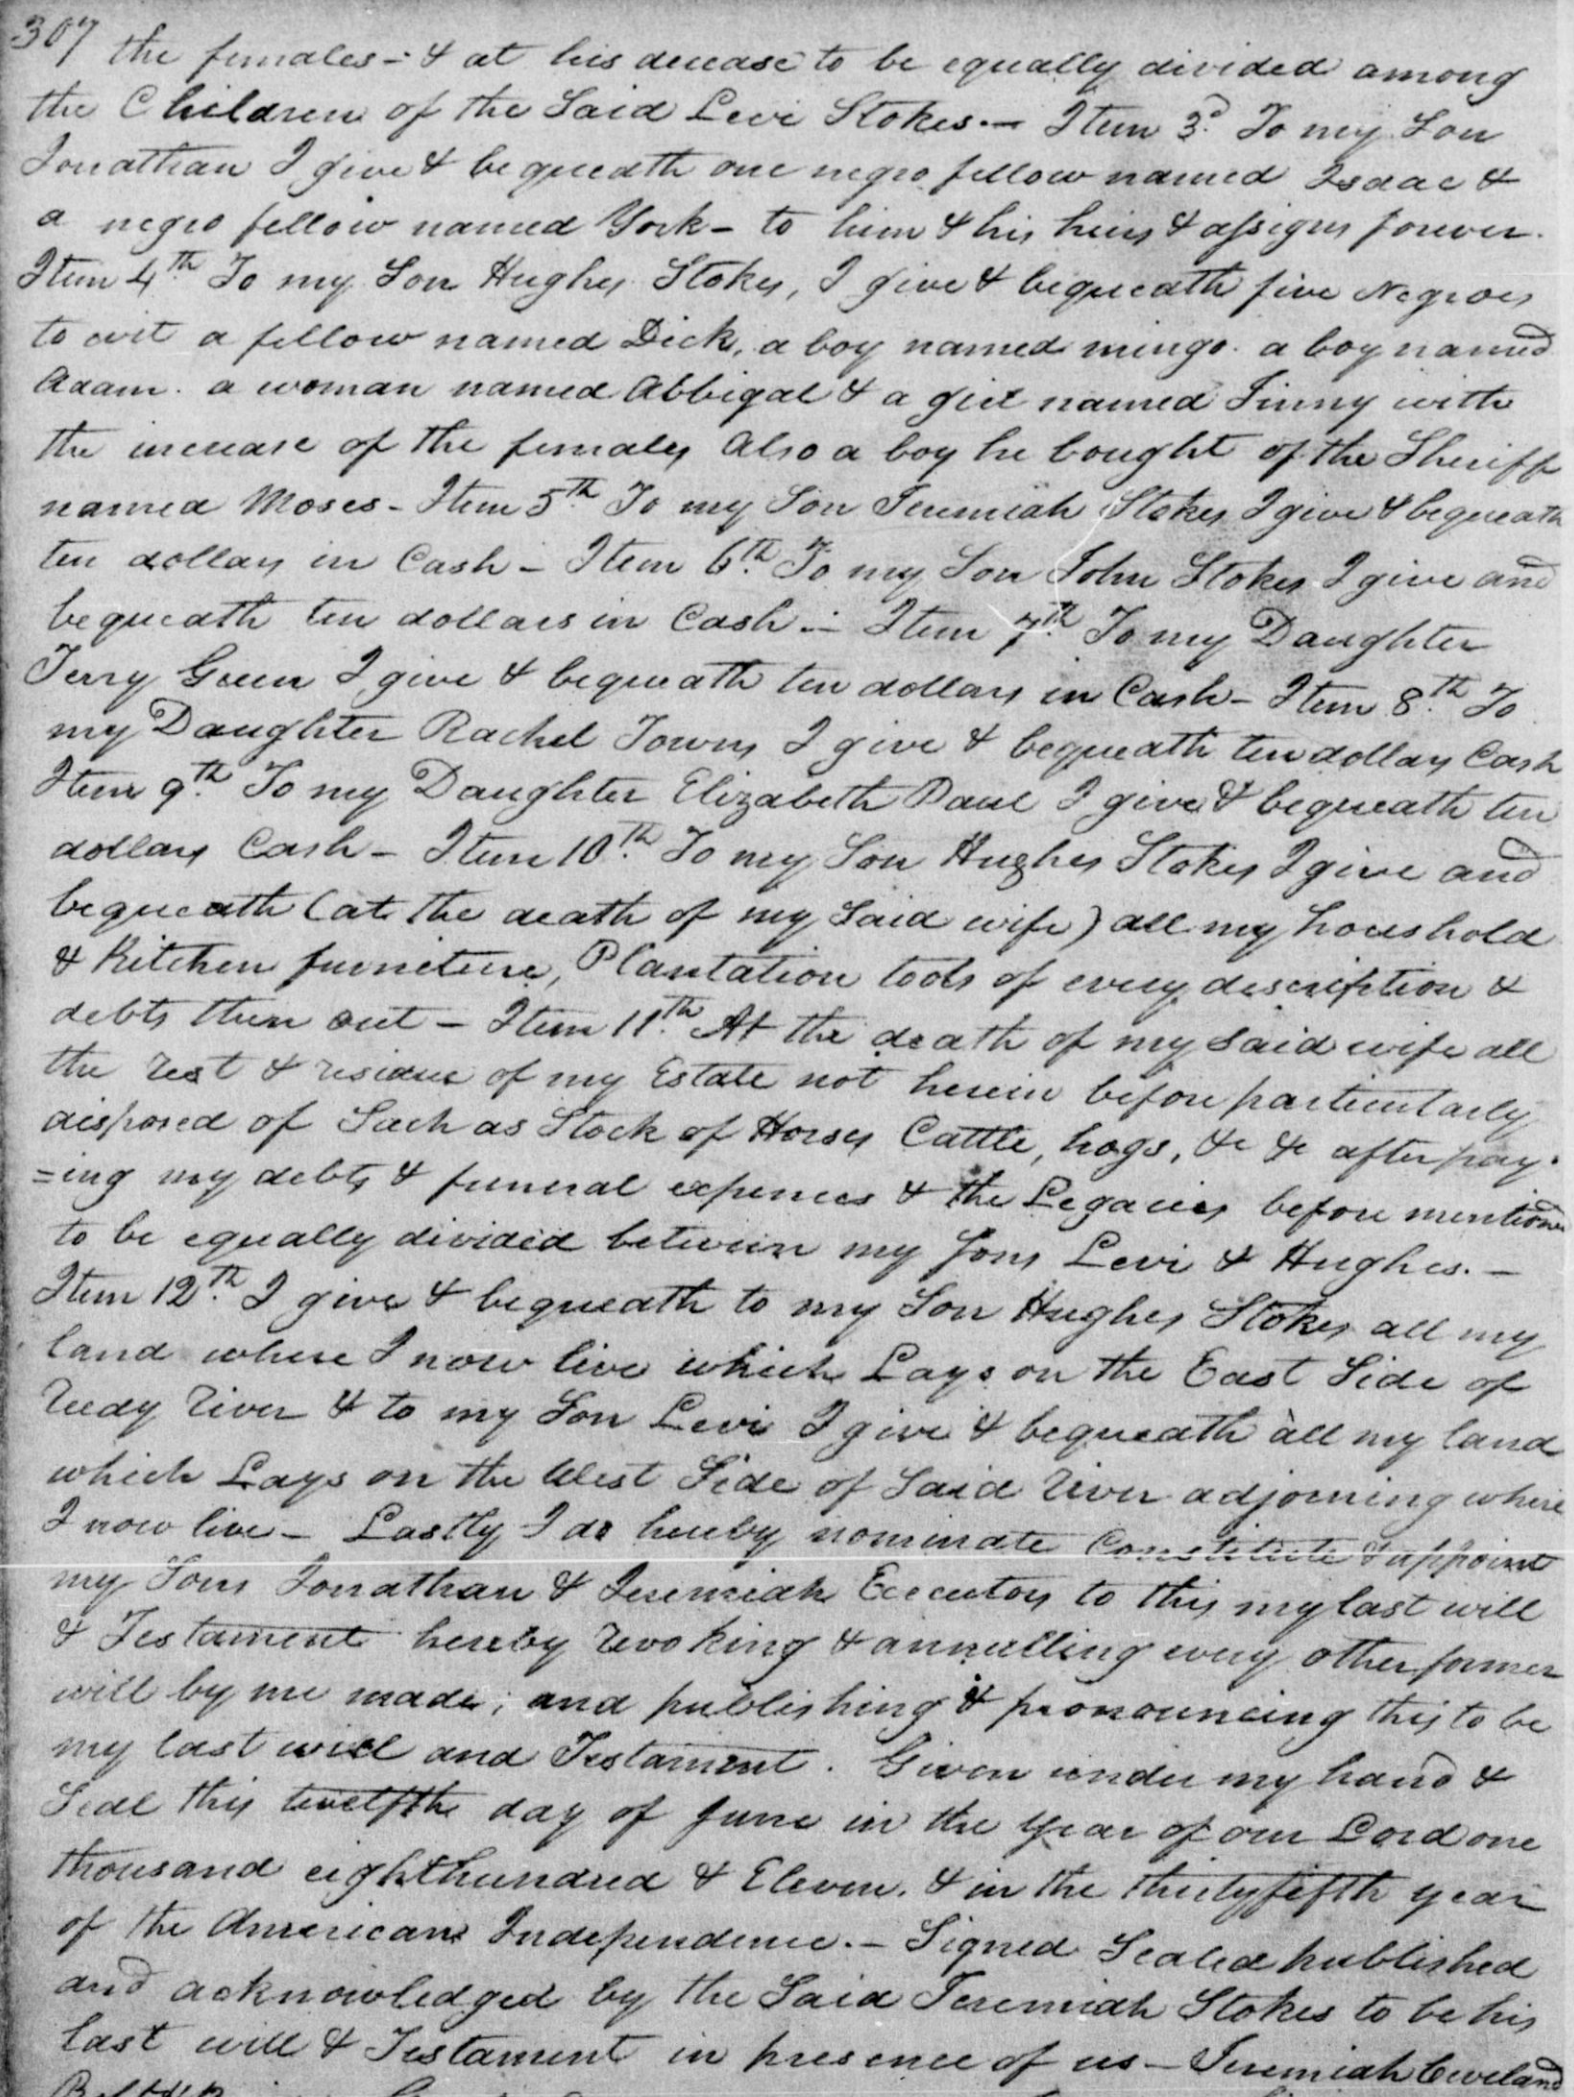 307 the females - & at his decease to be equally divided among
the Children of the Said Levi Stokes. - Item 3d. To my Son
Jonathan I give & bequeath one negro fellow named Isaac &
a negro fellow named York - to him & his heirs & assigns forever.
Item 4th. To my Son Hughes Stokes, I give & bequeath five Negroes
to wit a fellow named Dick, a boy named mingo. a boy named
Adam. a woman named Abbigal & a girl named Jinny with
the increase of the females Also a boy he bought of the Sheriff
named Moses - Item 5th To my Son Jeremiah Stokes I give & bequeath
ten dollars in Cash - Item 6th. To my Son John Stokes I give and
bequeath ten dollars in Cash - Item 7th. To my Daughter
Terry Green I give & bequeath ten dollars in Cash - Item 8th. To
my Daughter Rachel Towns I give & bequeath ten dollars Cash
Item 9th. To my Daughter Elizabeth Paul I give & bequeath ten
dollars Cash - Item 10th. To my Son Hughes Stokes I give and
bequeath (at the death of my Said wife) all my houshold
& Kitchen furniture, Plantation tools of every description &
debts then out - Item 11th. At the death of my Said wife all
the rest & residue of my Estate not herein before particularly
disposed of Such as Stock of Horses Cattle, hogs, &c &c after pay-
=ing my debts & funeral expences & the Legacies before mentiond
to be equally divided between my Sons Levi & Hughes. -
Item 12th. I give & bequeath to my Son Hughes Stokes all my
land where I now live which Lays on the East Side of
Reedy River & to my Son Levi I give & bequeath all my land
which Lays on the West Side of Said River adjoining where
I now live - Lastly I do hereby nominate Constitute & appoint
my Sons Jonathan & Jeremiah Executors to this my last will
& Testament hereby revoking & annulling every other former
will by me made; and publishing & pronouncing this to be
my last will and Testament. Given under my hand &
Seal this twelfth day of June in the Year of our Lord one
thousand eight hundred & Eleven. & in the thirty fifth year
of the American Independence. - Signed Sealed published
and acknowledged by the Said Jeremiah Stokes to be his
last will & Testament in presence of us - Jeremiah Cleveland